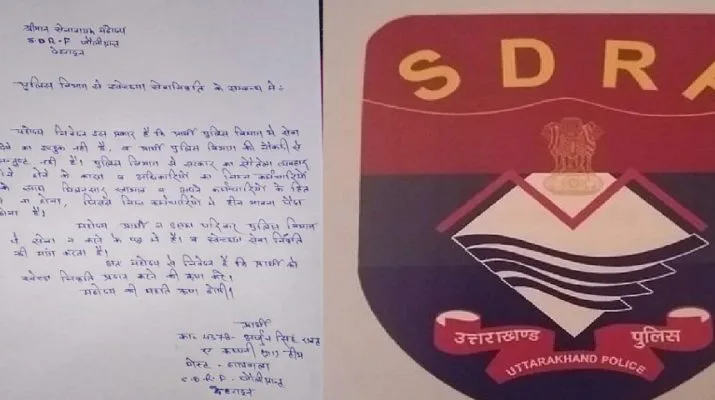 श्रीमान सेनानायक महोदय
S.D.R.F जौलीग्रान्ट
देहरादून
पुलिस विभाग से स्वेच्छा सेवानिवृति के सम्बन्ध में :-
महोदय निवेदन इस प्रकार है कि प्रार्थी पुलिस विभाग में सेवा
का इच्छुक नहीं है, व प्रार्थी पुलिस विभाग की नौकरी से
नहीं है। पुलिस विभाग से सरकार का सौतेला व्यवहार
होने के कारण व अधिकारियों का निम्न कर्मचारियों
के साथ स्वभाव व अपने कर्मचारियों के हित
न होना, जिससे निम्न कर्मचारियों में हीन भावना पैदा
होना है।
महोदय प्रार्थी व उसका परिवार पुलिस विभाग
में सेवा न करने के पक्ष में है। व स्वेच्छा सेवा निवृति
की मांग करता है।
अतः महोदय से निवेदन है कि प्रार्थी को
स्वेच्छा निवृति प्रदान करने की कृपा करें।
महोदय की महति कृपा होगी।
प्रार्थी
का० 4378- सिंह
ए कम्पनी टीम
पोस्ट -
S.D.R.F. जौलीग्रान्ट
देहरादून
SDRF
उत्तराखण्ड पुलिस
UTTARAKHAND POLICE